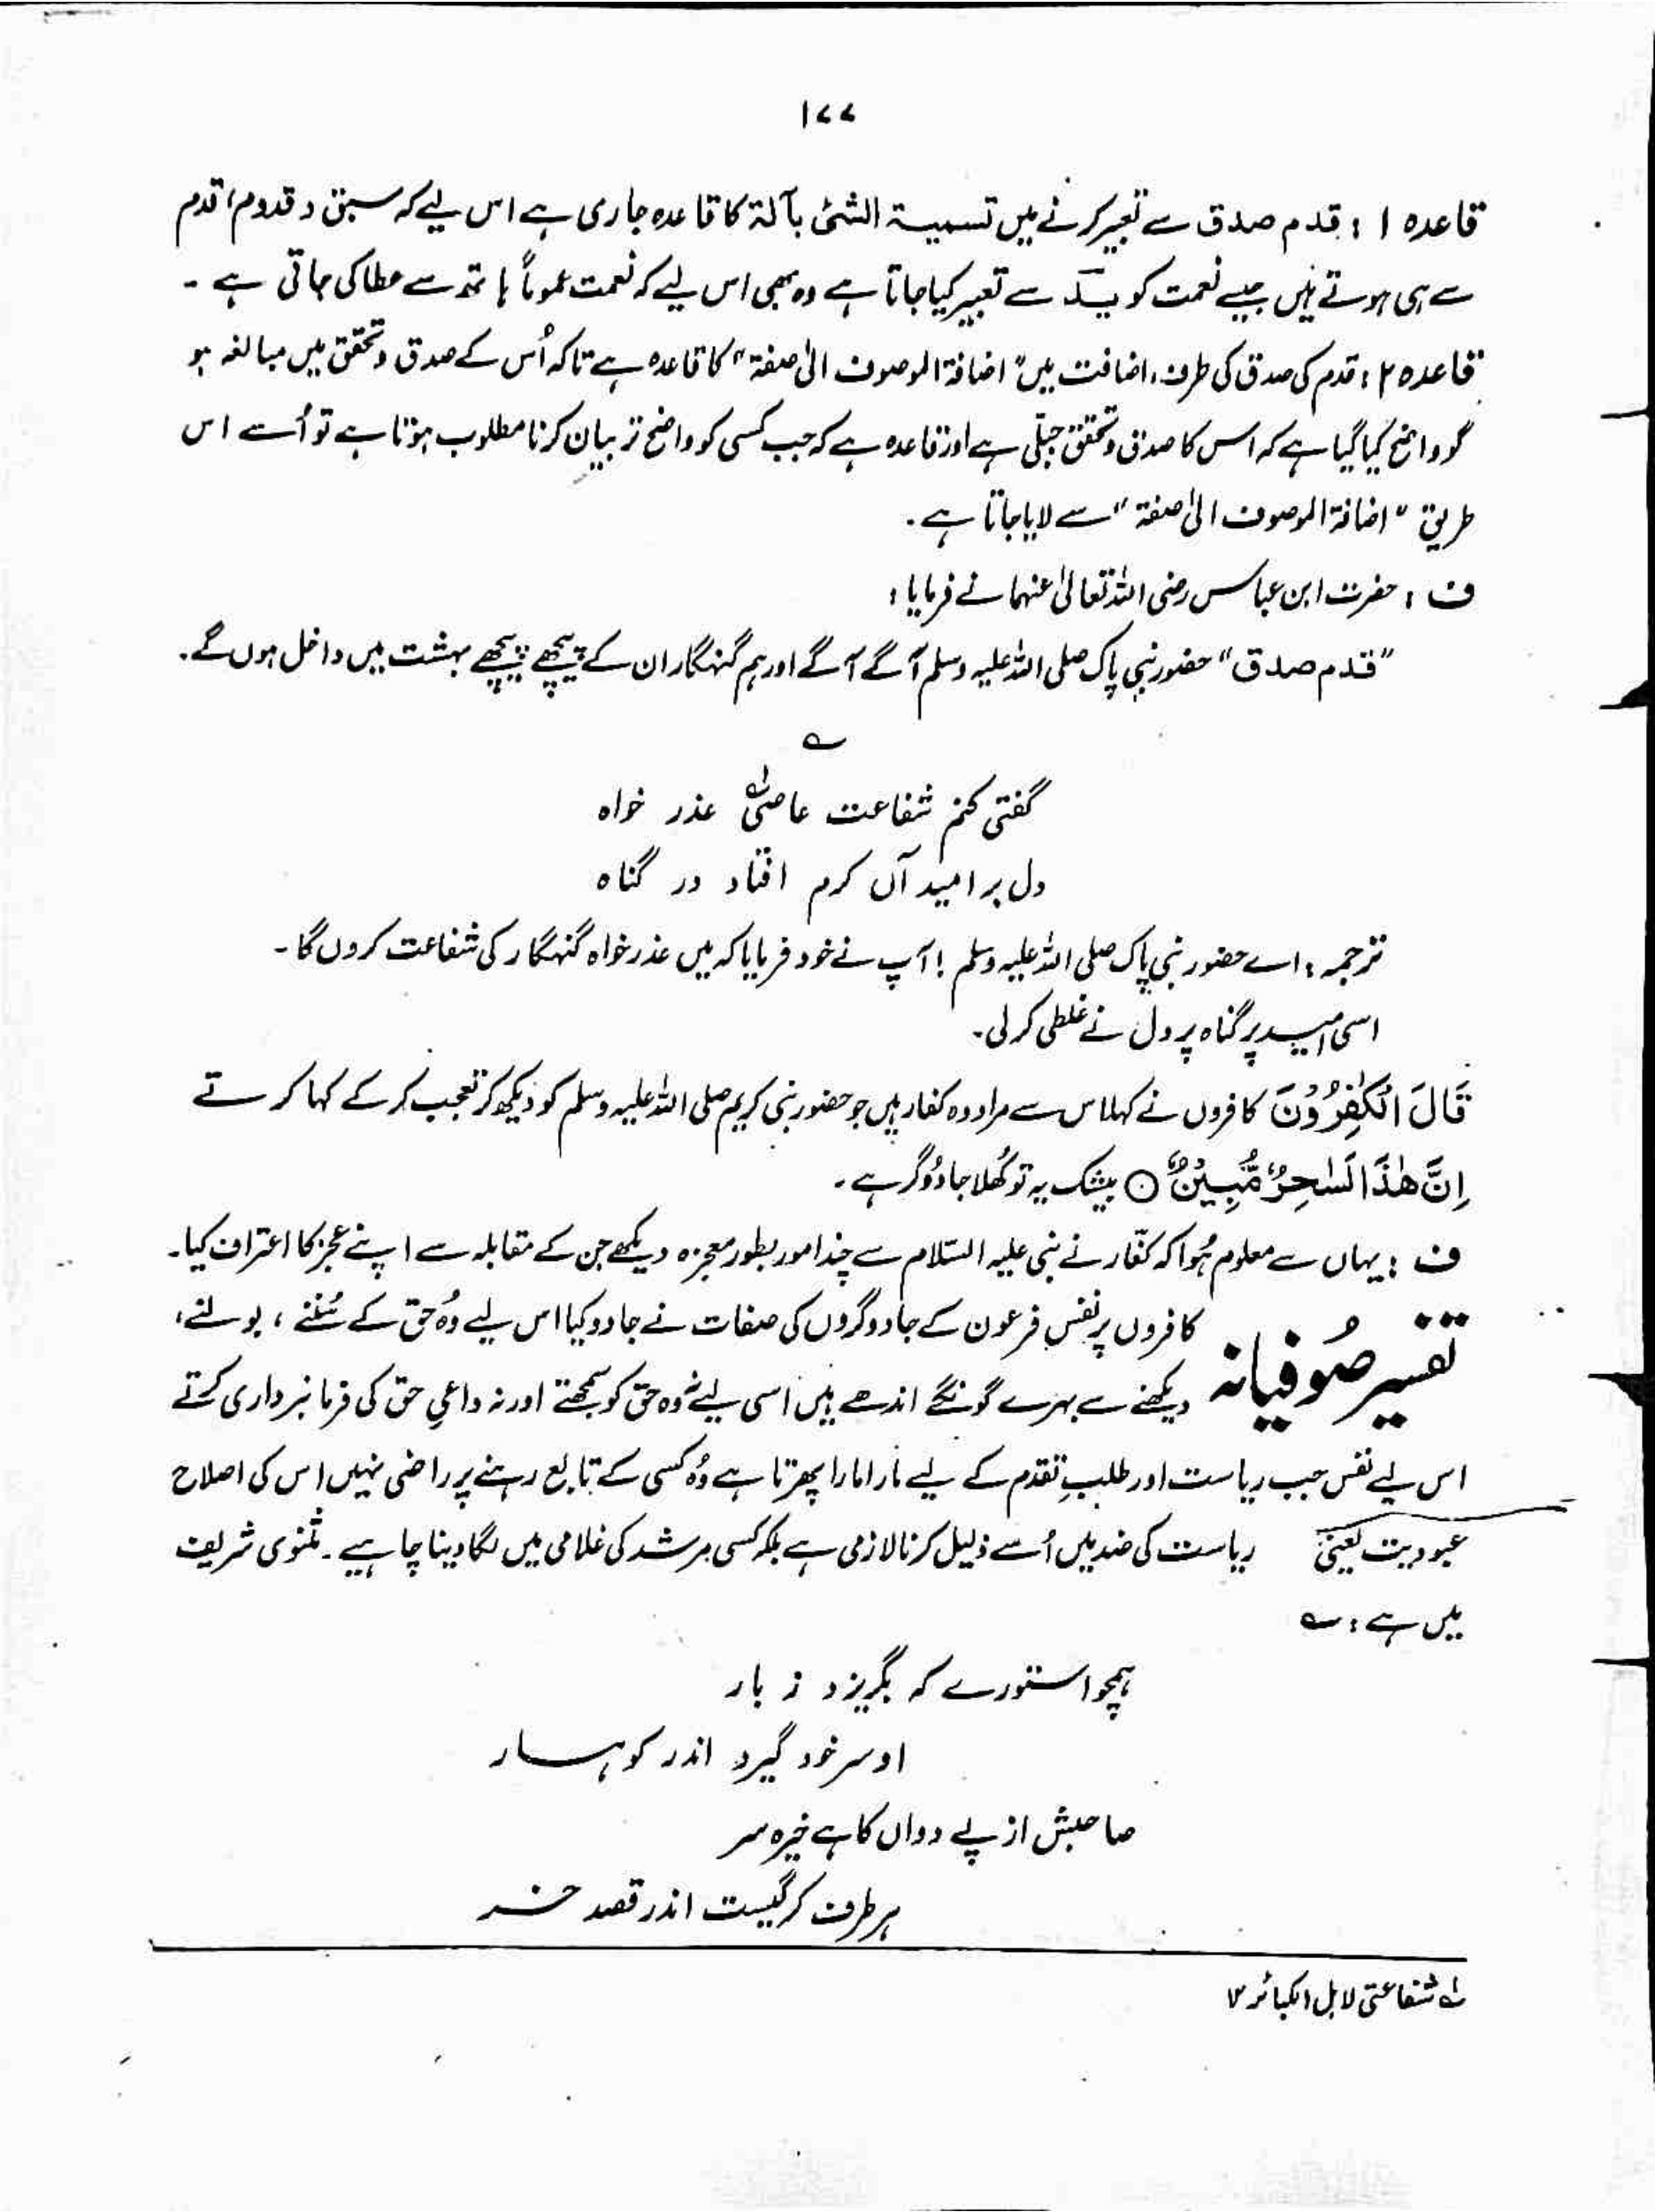 ۱۷۷
قاعدہ ۱ : قدم صدق سے تعبیر کرنے میں تسمیۃ الشیٔ بآلۃ کا قاعدہ جاری ہے اس لیے کہ سبق و قدوم ، قدم
سے ہی ہوتے ہیں جیسے نعمت کو ید سے تعبیر کیا جاتا ہے وہ بھی اس لیے کہ نعمت عموماً ہاتھ سے عطا کی جاتی ہے ۔
قاعدہ ۲ : قدم کی صدق کی طرف اضافت میں "اضافۃ الموصوف الیٰ صفۃ" کا قاعدہ ہے تاکہ اُس کے صدق و تحقق میں مبالغہ ہو
گو واضح کیا گیا ہے کہ اس کا صدق و تحقق جبلّی ہے اور قاعدہ ہے کہ جب کسی کو واضح تر بیان کرنا مطلوب ہوتا ہے تو اُسے اس
طریق "اضافۃ الموصوف الیٰ صفۃ" سے لایا جاتا ہے ۔
ف : حضرت ابن عباس رضی اللہ تعالیٰ عنہما نے فرمایا :
"قدم صدق" حضور نبی پاک صلی اللہ علیہ وسلم آگے آگے اور ہم گنہگار ان کے پیچھے پیچھے بہشت میں داخل ہوں گے ۔
؎
گفتی کنم شفاعت عاصیٔ؎۱ عذر خواہ
دل بر امید آں کرم افتاد در گناہ
ترجمہ : اے حضور نبی پاک صلی اللہ علیہ وسلم ! آپ نے خود فرمایا کہ میں عذر خواہ گنہگار کی شفاعت کروں گا ۔
اسی امید پر گناہ پر دل نے غلطی کر لی ۔
قَالَ الْکٰفِرُوْنَ کافروں نے کہا اس سے مراد وہ کفار ہیں جو حضور نبی کریم صلی اللہ علیہ وسلم کو دیکھ کر تعجب کر کے کہا کرتے
اِنَّ ھٰذَا لَسٰحِرٌ مُّبِیْنٌ ○ بیشک یہ تو کُھلا جادُوگر ہے ۔
ف : یہاں سے معلوم ہُوا کہ کفّار نے نبی علیہ السّلام سے چند امور بطور معجزہ دیکھے جن کے مقابلہ سے اپنے عجز کا اعتراف کیا ۔
تفسیر صُوفیانہ کافروں پر نفسِ فرعون کے جادوگروں کی صفات نے جادو کیا اس لیے وُہ حق کے سُننے ، بولنے ،
دیکھنے سے بہرے گونگے اندھے ہیں اسی لیے نہ وہ حق کو سمجھتے اور نہ داعیِ حق کی فرمانبرداری کرتے
اس لیے نفس جب ریاست اور طلبِ تقدم کے لیے مارا مارا پھرتا ہے وُہ کسی کے تابع رہنے پر راضی نہیں اس کی اصلاح
عبودیت یعنی ریاست کی ضد میں اُسے ذلیل کرنا لازمی ہے بلکہ کسی مرشد کی غلامی میں لگا دینا چاہیے ۔ مثنوی شریف
میں ہے : ؎
ہمچو استورے کہ بگریزد ز بار
او سر خود گیرد اندر کوہسار
صاحبش از پے دواں کاہے خیرہ سر
ہر طرف گرگیست اندر قصد خر
؎۱ شفاعتی لاہل الکبائر ۱۲